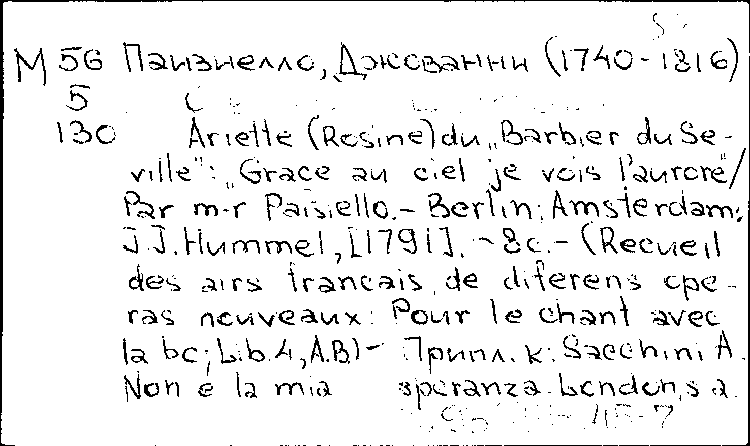 М 56 Паизиелло, Джованни (1740-1816)
5
130 Ariette (Rosine) du „Barbier du Se-
ville": „Grace au ciel je vois l'aurore"/
Par m-r Paisiello.- Berlin; Amsterdam:
J.J. Hummel, [1791]. - 8c. - (Recueil
des airs francais de diferens ope-
ras nouveaux: Pour le chant avec
la bc; Lib. 4, A.B.) - Припл. к: Sacchini A.
Non è la mia speranza. London, s.a.